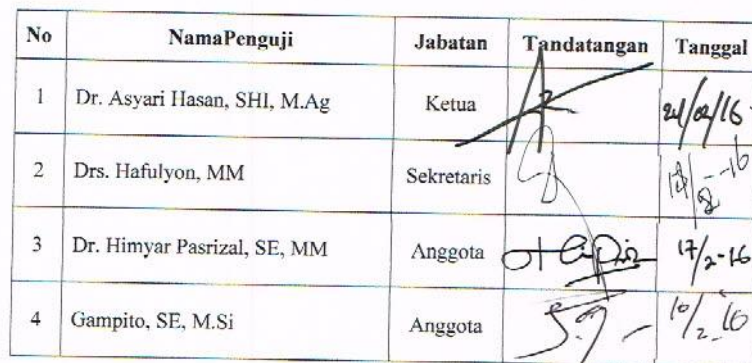 No NamaPenguji Jabatan Tandatangan Tanggal
1 Dr. Asyari Hasan, SHI, M.Ag Ketua
2 Drs. Hafulyon, MM Sekretaris
3 Dr. Himyar Pasrizal, SE, MM Anggota 17/2-16
4 Gampito, SE, M.Si Anggota